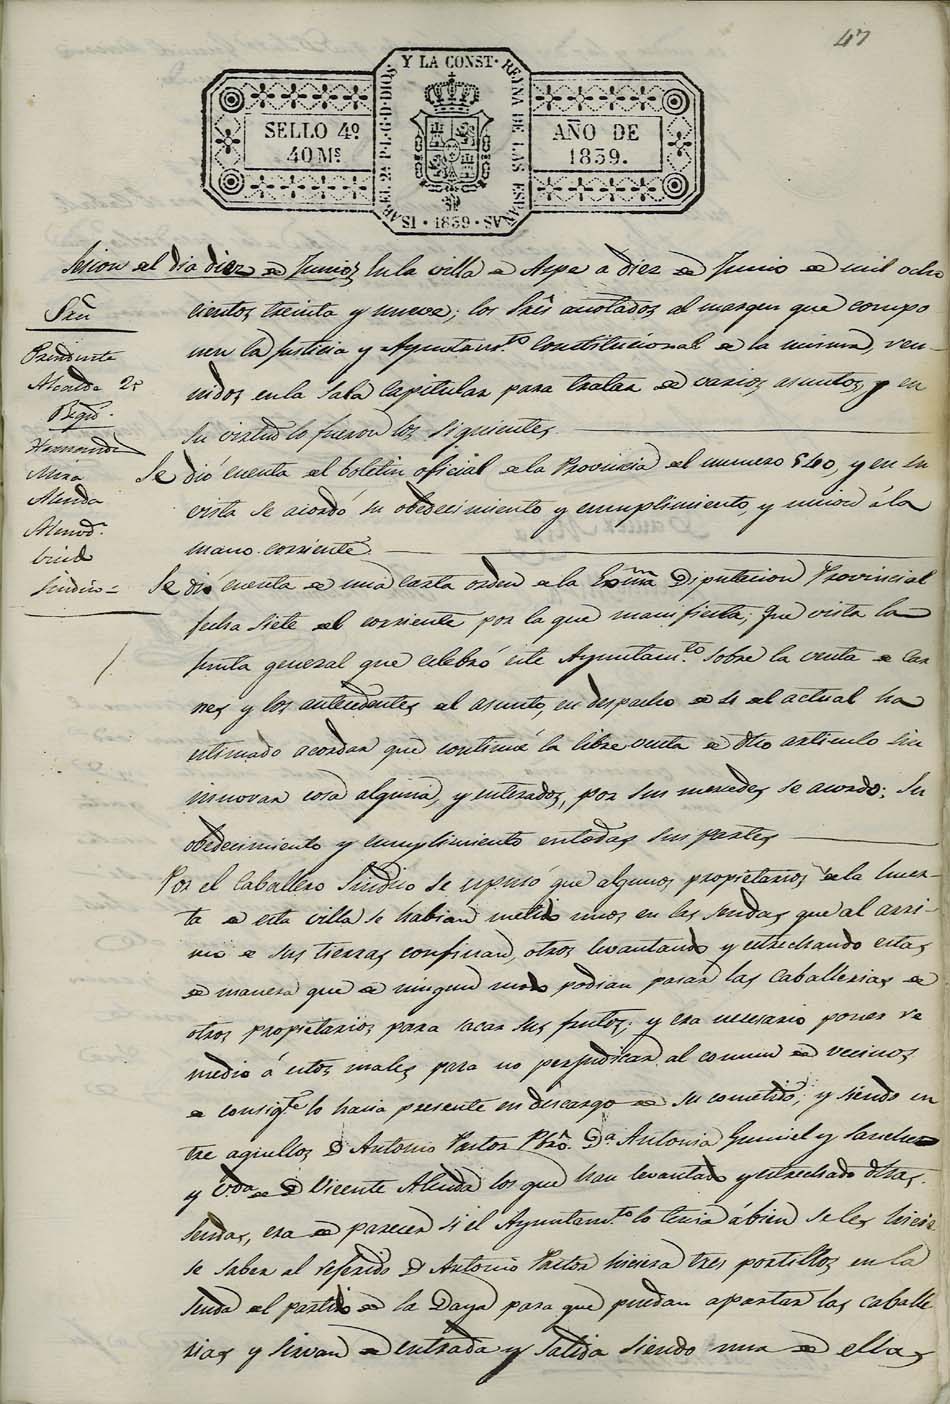 47
ISABEL 2ª P.L.G.D.DIOS Y LA CONST. REYNA DE LAS ESPAÑAS
SELLO 4º
40 Mˢ
AÑO DE
1839.
1839
Sesion del dia diez de Junio; En la villa de Aspe a diez de Junio de mil ocho
cientos treinta y nueve; los Sres anotados al margen que compo
nen la Justicia y Ayuntamto Constitucional de la misma, reu-
nidos en la Sala Capitular para tratar de varios asuntos, y en
su virtud lo fueron los siguientes
Sres
Presidente
Alcalde 2º
Regid.
Hernandez
Mira
Alenda
Almod.
Cvid
Sindico =
Se dió cuenta del boletin oficial de la Provincia del numero 540, y en su
vista se acordó su obedecimiento y cumplimiento, y union á la
mano corriente
Se dió cuenta de una carta orden de la Exma Diputacion Provincial
fecha siete del corriente por la que manifiesta; que vista la
junta general que celebró este Ayuntamto sobre la venta de car
nes y los antecedentes del asunto, en despacho de 4 del actual ha
estimado acordar que continué la libre venta de dho articulo sin
innovar cosa alguna, y enterados, por sus mercedes se acordo: Su
obedecimiento y cumplimiento en todas sus partes
Por el Caballero Sindico se espuso que algunos propietarios de la huer-
ta de esta villa se habian metido unos en las sendas, que al arri-
mo de sus tierras confinan, otros levantando y estrechando estas
de manera que de ningun modo podian pasar las Caballerias de
otros propietarios para sacar sus frutos; y era necesario poner re
medio á estos males para no perjudicar al comun de vecinos
de consigte lo hacia presente en descargo de su cometido; y siendo en
tre aquellos D Antonio Pastor Pbro. Da Antonia Gumiel y Sanchez
y Vda de D Vicente Alenda los que han levantado y estrechado dhas
sendas, era de parecer si el Ayuntamto lo tenia á bien se les hicie
se saber al referido D Antonio Pastor hiciera tres portillos en la
senda del partido de la Daya para que puedan apartar las caballe
rias y sirvan de entrada y salida siendo una de ellas